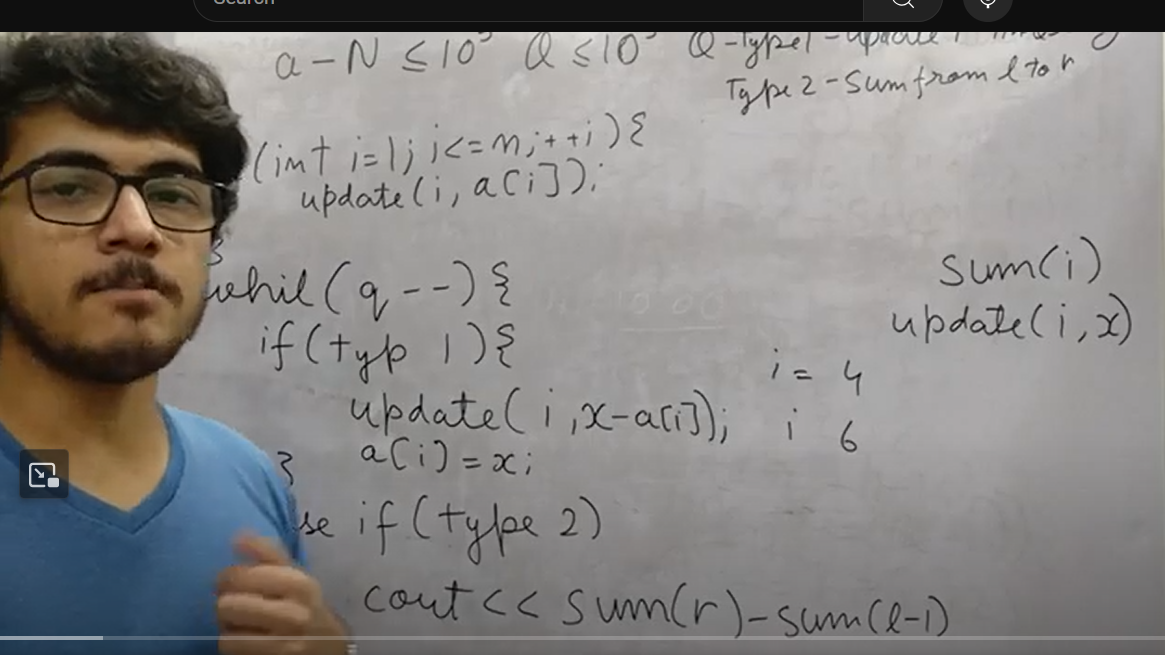 Search
a - N ≤ 10⁵ Q ≤ 10⁵ Q - Type 1 - update i
Type 2 - Sum from l to r
(int i=1; i<=n; ++i){
update(i, a[i]);
}
whil(q--){
if(typ 1){
update(i, x-a[i]);
a[i] = x;
}
se if(type 2)
cout << sum(r)-sum(l-1)
sum(i)
update(i,x)
i = 4
i 6